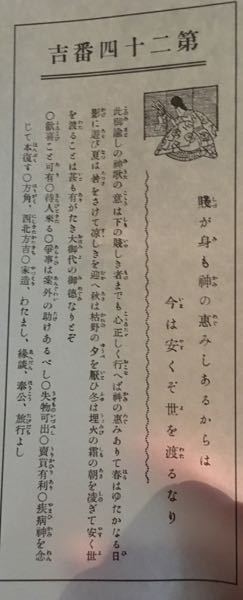 第二十四番吉
賤が身も神の惠みしあるからは
今は安くぞ世を渡るなり
此御諭しの神歌の意は下の賤しき者までも心正しく行へば神の惠みありて春はゆたかなる日
影に遊び夏は暑をさけて涼しきを迎へ秋は枯野の夕を厭ひ冬は埋火の霜の朝を凌ぎて安く世
を渡ることは甚も有がたき大御代の御德なりとぞ
〇歡喜こと可有〇待人來る〇爭事は案外の助けあるべし〇失物可出〇賣買有利〇疾病神を念
じて本復す〇方角、西北方吉〇家造、わたまし、緣談、奉公、旅行よし